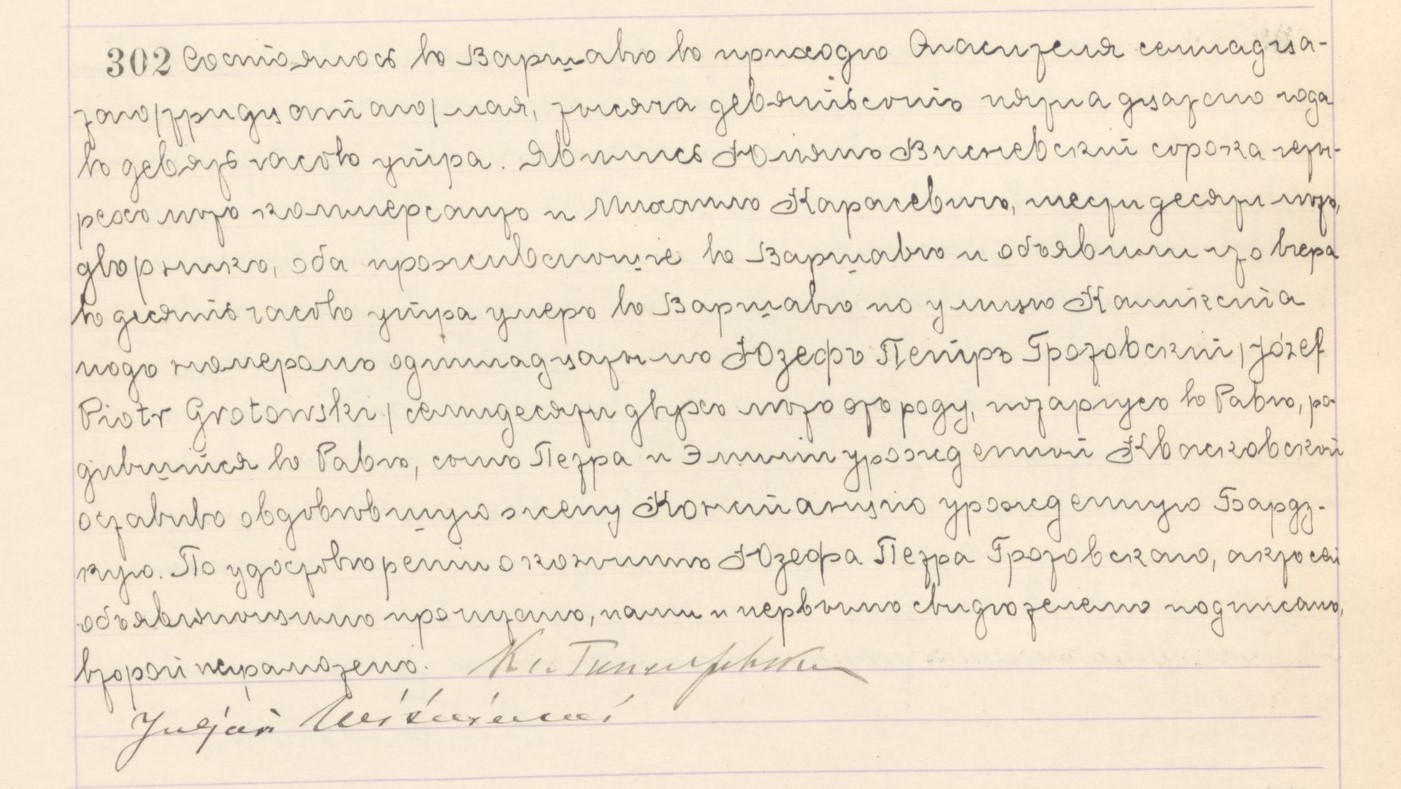 302 Состоялось въ Варшавѣ въ приходѣ Спасителя семнадца-
таго/тридцатаго/мая, тысяча девятьсотъ пятнадцатаго года
въ девять часовъ утра. Явились Юліянъ Висневскій сорока четы-
рехъ лѣтъ коммерсантъ и Михаилъ Карасевичъ, шестидесяти лѣтъ,
дворникъ, оба проживающіе въ Варшавѣ и объявили что вчера
въ десять часовъ утра умеръ въ Варшавѣ по улицѣ
подъ номеромъ одиннадцатымъ Юзефъ Петръ Гротовскій /Józef
Piotr Grotowski/ семидесяти двухъ лѣтъ отъ роду, нотаріусъ въ Равѣ, ро-
дившійся въ Равѣ, сынъ Петра и Эмиліи урожденной
оставивъ овдовѣвшую жену Констанцію урожденную Бардз-
кую. По удостовѣреніи о кончинѣ Юзефа Петра Гротовскаго, актъ сей
объявляющимъ прочитанъ, нами и первымъ свидѣтелемъ подписанъ,
второй неграмотенъ.
Juljan Wiśniewski